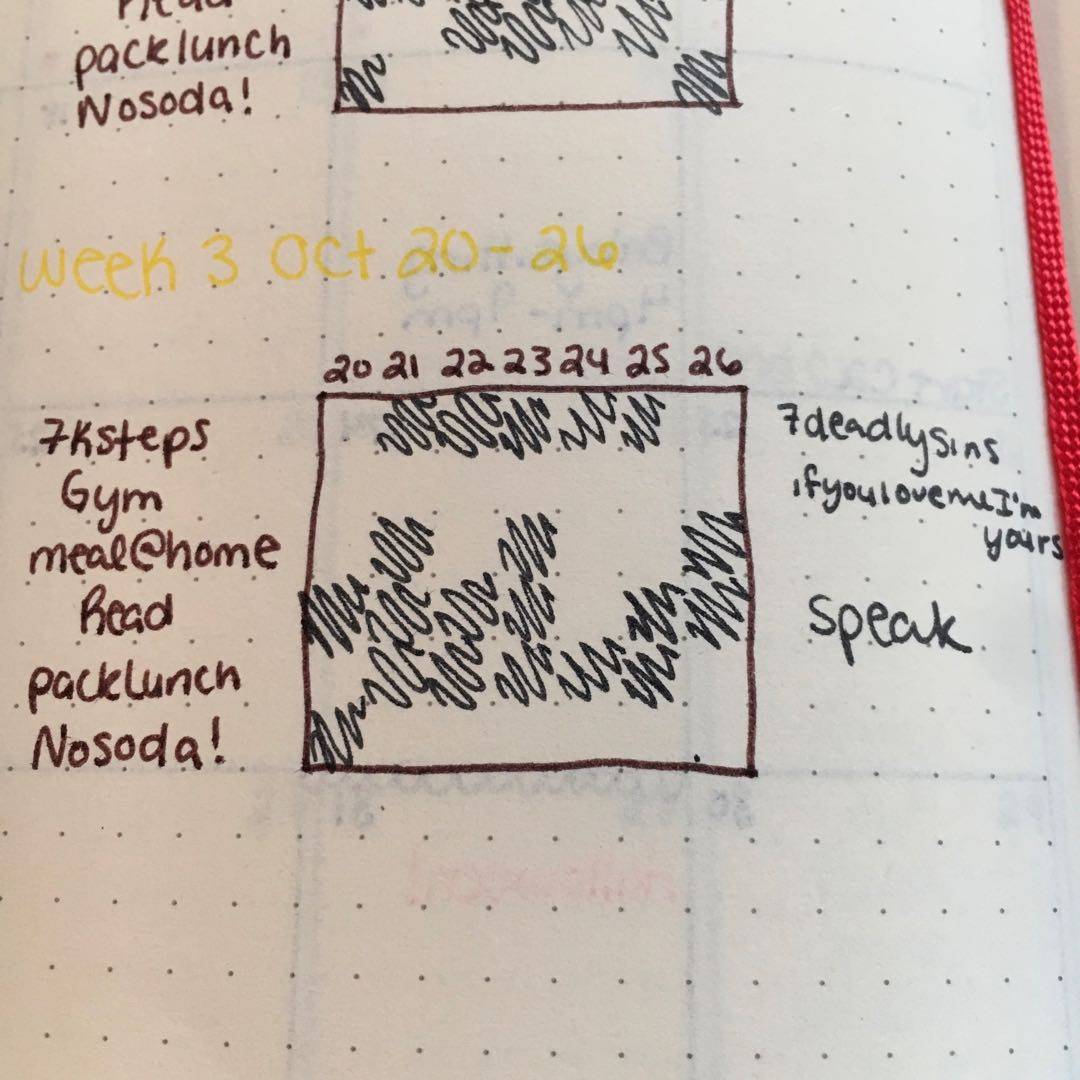 Read
packlunch
Nosoda!
week 3 Oct 20-26
20 21 22 23 24 25 26
7Ksteps
Gym
meal@home
Read
packlunch
Nosoda!
7deadlysins
ifyoulovemeI'm
yours
Speak